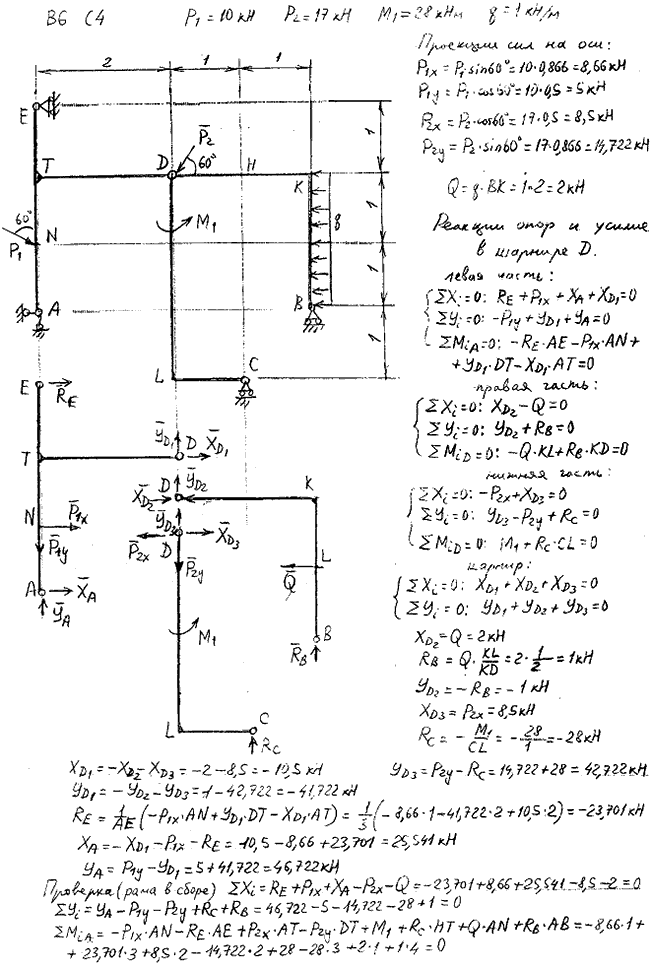 В6 С4 P₁ = 10 кН P₂ = 17 кН M₁ = 28 кНм q = 1 кН/м
Проекции сил на оси:
P₁x = P₁·sin60° = 10·0,866 = 8,66 кН
P₁y = P₁·cos60° = 10·0,5 = 5 кН
P₂x = P₂·cos60° = 17·0,5 = 8,5 кН
P₂y = P₂·sin60° = 17·0,866 = 14,722 кН
Q = q·BK = 1·2 = 2 кН
Реакции опор и усилие
в шарнире D.
левая часть:
ΣXi=0: RE + P₁x + XA + XD₁ = 0
ΣYi=0: -P₁y + YD₁ + YA = 0
ΣMiA=0: -RE·AE - P₁x·AN +
+ YD₁·DT - XD₁·AT = 0
правая часть:
ΣXi=0: XD₂ - Q = 0
ΣYi=0: YD₂ + RB = 0
ΣMiD=0: -Q·KL + RB·KD = 0
нижняя часть:
ΣXi=0: -P₂x + XD₃ = 0
ΣYi=0: YD₃ - P₂y + RC = 0
ΣMiD=0: M₁ + RC·CL = 0
шарнир:
ΣXi=0: XD₁ + XD₂ + XD₃ = 0
ΣYi=0: YD₁ + YD₂ + YD₃ = 0
XD₂ = Q = 2 кН
RB = Q·KL/KD = 2·1/2 = 1 кН
YD₂ = -RB = -1 кН
XD₃ = P₂x = 8,5 кН
RC = -M₁/CL = -28/1 = -28 кН
2 1 1
E
T D P̄₂ 60° H K
1 1 1 1
60° P₁ N M₁ q
A B
L C
E R̄E
ȲD₁ D X̄D₁
T
D ȲD₂ X̄D₂ K
N P̄₁x P̄₁y
ȲD₃ X̄D₃ P̄₂x D P̄₂y
Q̄ L
A X̄A ȲA
M₁ R̄B B
L C R̄C
XD₁ = -XD₂ - XD₃ = -2 - 8,5 = -10,5 кН YD₃ = P₂y - RC = 14,722 + 28 = 42,722 кН
YD₁ = -YD₂ - YD₃ = 1 - 42,722 = -41,722 кН
RE = 1/AE (-P₁x·AN + YD₁·DT - XD₁·AT) = 1/3 (-8,66·1 - 41,722·2 + 10,5·2) = -23,701 кН
XA = -XD₁ - P₁x - RE = 10,5 - 8,66 + 23,701 = 25,541 кН
YA = P₁y - YD₁ = 5 + 41,722 = 46,722 кН
Проверка (рама в сборе) ΣXi = RE + P₁x + XA - P₂x - Q = -23,701 + 8,66 + 25,541 - 8,5 - 2 = 0
ΣYi = YA - P₁y - P₂y + RC + RB = 46,722 - 5 - 14,722 - 28 + 1 = 0
ΣMiA = -P₁x·AN - RE·AE + P₂x·AT - P₂y·DT + M₁ + RC·HT + Q·AN + RB·AB = -8,66·1 +
+ 23,701·3 + 8,5·2 - 14,722·2 + 28 - 28·3 + 2·1 + 1·4 = 0